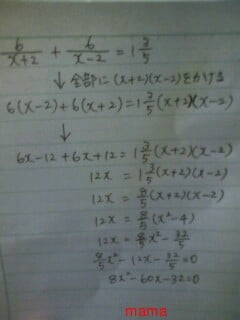 6/(x+2) + 6/(x-2) = 1 3/5
↓ 全部に (x+2)(x-2) をかける
6(x-2)+6(x+2)=1 3/5 (x+2)(x-2)
↓
6x-12+6x+12=1 3/5 (x+2)(x-2)
12x = 1 3/5 (x+2)(x-2)
12x = 8/5 (x+2)(x-2)
12x = 8/5 (x²-4)
12x = 8/5 x² - 32/5
8/5 x² - 12x - 32/5 = 0
8x² - 60x - 32 = 0
mama